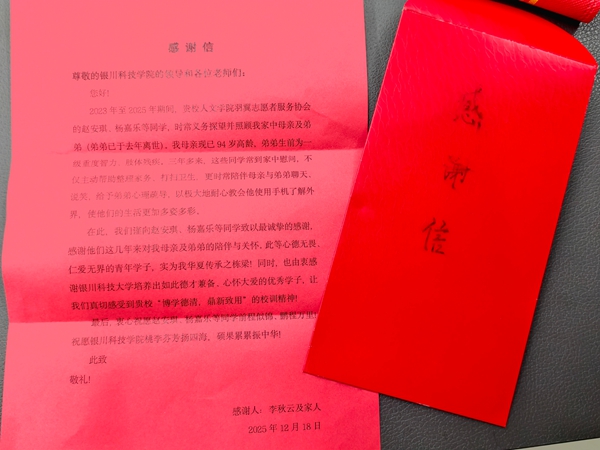 感谢信
尊敬的银川科技学院的领导和各位老师们：
您好！
2023年至2025年期间，贵校人文学院羽翼志愿者服务协会
的赵安琪、杨嘉乐等同学，时常义务探望并照顾我家中母亲及弟
弟（弟弟已于去年离世）。我母亲现已94岁高龄，弟弟生前为一
级重度智力、肢体残疾，三年多来，这些同学常到家中慰问，不
仅主动帮助整理家务、打扫卫生，更时常陪伴母亲与弟弟聊天、
谈笑，给予弟弟心理疏导，以极大地耐心教会他使用手机了解外
界，使他们的生活更加多姿多彩。
在此，我们谨向赵安琪、杨嘉乐等同学致以最诚挚的感谢，
感谢他们这几年来对我母亲及弟弟的陪伴与关怀。此等心德无畏、
仁爱无界的青年学子，实为我华夏传承之栋梁！同时，也由衷感
谢银川科技大学培养出如此德才兼备、心怀大爱的优秀学子，让
我们真切感受到贵校“博学德清，鼎新致用”的校训精神！
最后，衷心祝愿赵安琪、杨嘉乐等同学前程似锦，鹏程万里！
祝愿银川科技学院桃李芬芳播四海，硕果累累振中华！
此致
敬礼！
感谢人：李秋云及家人
2025年12月18日
感谢信